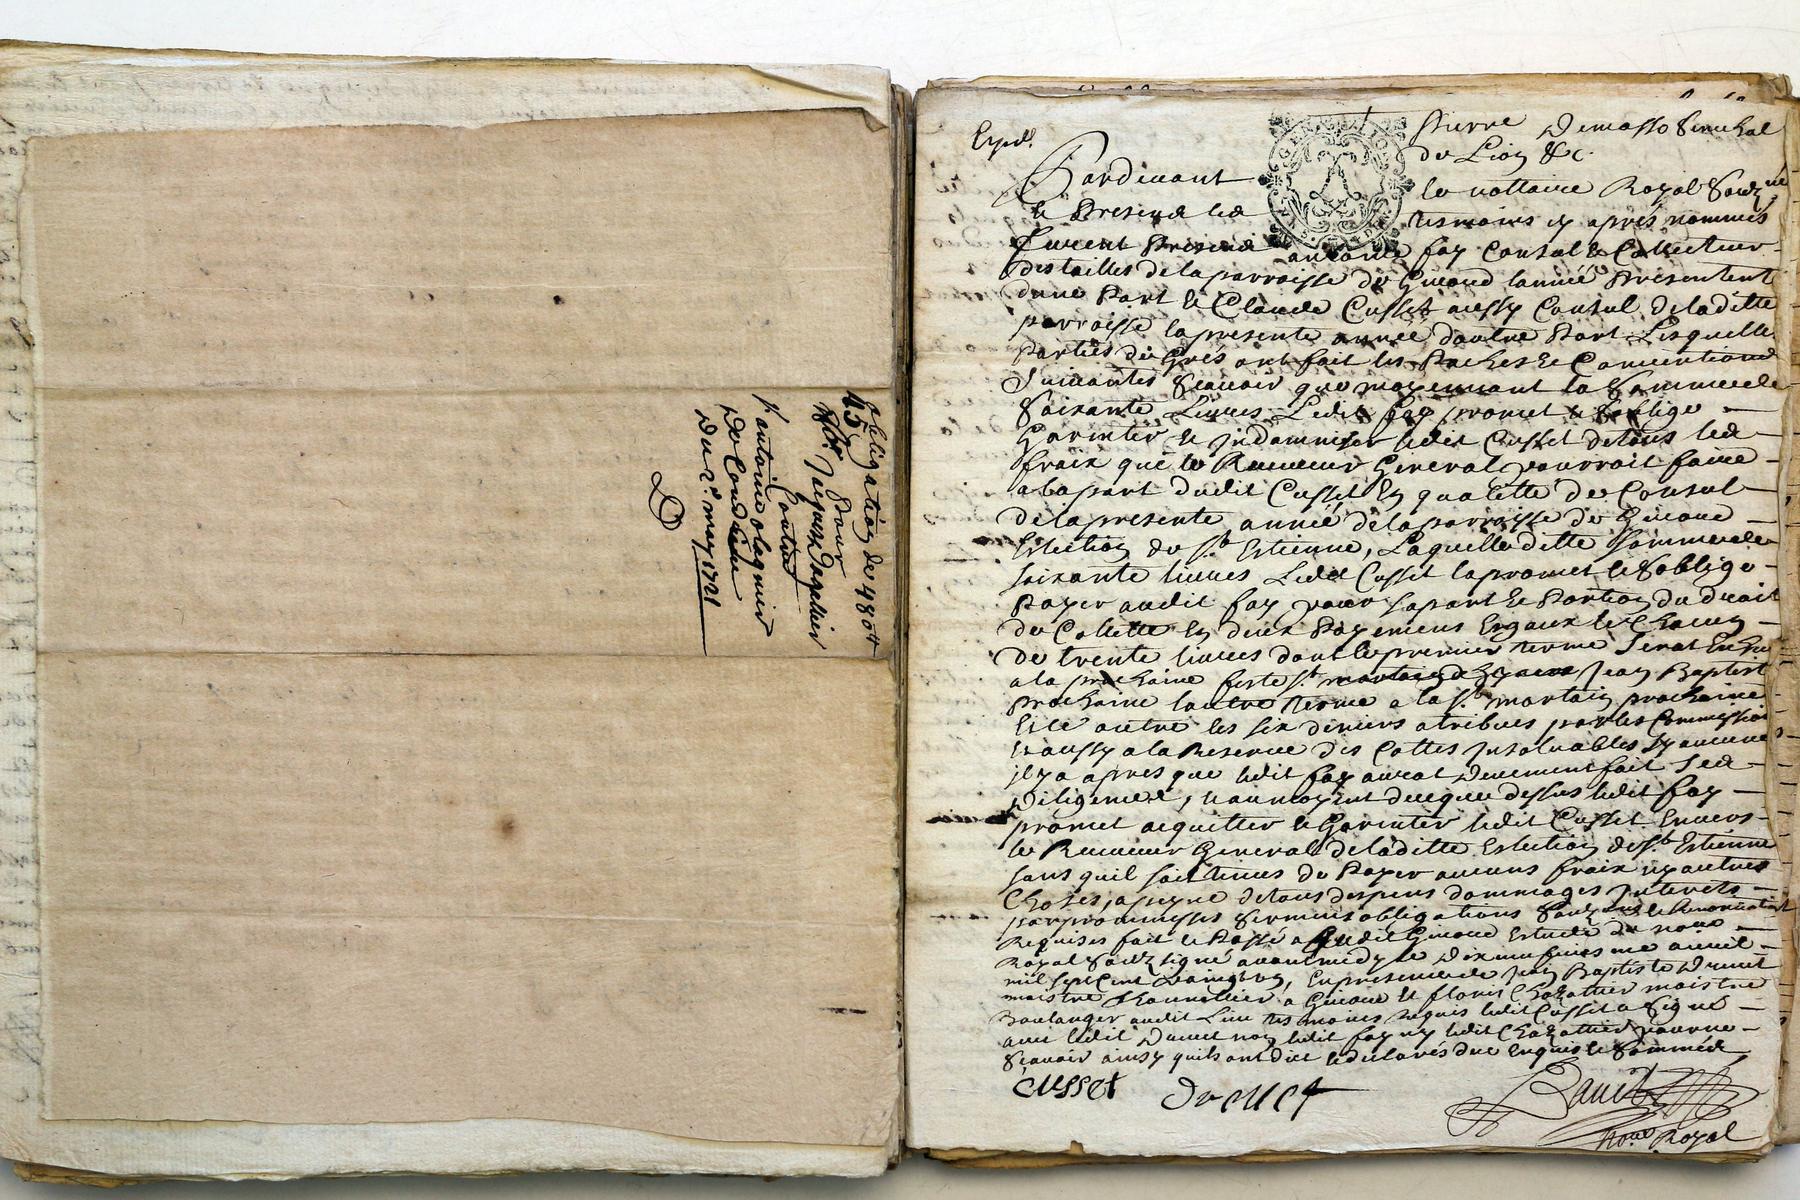 obligation de 480ᵗᵗ
45
pour
sʳ Jacques
Contre
antoine olagnier
De Condrieu
Du 2ᵉ may 1721
Exped.
GENERAL
pierre Demasso senechal
de Lion &c.
Pardevant le nottaire Royal souzné
& Presend les tesmoins cy aprés nommés
furent Present antoine fay Consul & Collecteur
des tailles de la parroisse de Givord lannée Presentent
dune Part & Claude Cusset aussy Consul de laditte
parroisse la presente année dautre Part Lesquelles
Parties de Grés ont fait les Paches & Conventions
suivantes scavoir que moyennant la somme de
soixante Livres Ledit fay promet & soblige
Garentir & jndamniser ledit Cusset de tous les
fraix que le Receveur General pourroit faire
a la part dudit Cusset En qualitté de Consul
de la presente année de la parroisse de Givord
Eslection de Sᵗ Estienne, Laquelle ditte somme de
soixante livres Ledit Cusset la promet & soblige
Payer audit fay pour sa part & Portion du droit
de Collette En deux Payemens Esgaux & Chacun
de trente livres dont le premier terme serat
a la prochaine feste Sᵗ Jean Baptiste
prochaine lautre terme a la Sᵗ martin prochaine
Et ce outre les six deniers atribues par les Commissions
Et aussy a la Reserve des Cottes jnsolvables sy aucune
jl y a apres que ledit fay aurat deuement fait ses
Diligences, & au moyent de ce que dessus ledit fay
promet acquitter & Garentir ledit Cusset Envers
le Receveur General de laditte Eslection de Sᵗ Estienne
sans quil soit tenus de Payer aucuns fraix ny autres
Choses, a peyne de tous despens dommages jnterets
par prommesses serments obligations &
Requises fait & Passé audit Givord Estude du nore
Royal souz signé avant midy le Dix neufviesme avril
mil sept Cent vaingt un, En presence de jean Baptiste Drevet
maistre Givord & floris Chazattier maistre
Boulanger audit Lieu tesmoins requis ledit Cusset a signé
avec ledit Drevet non ledit fay ny ledit Chazattier pour ne
scavoir ainsy quils ont dict & declarés due Enquis & sommés
Cusset Drevet
noʳᵉ Royal